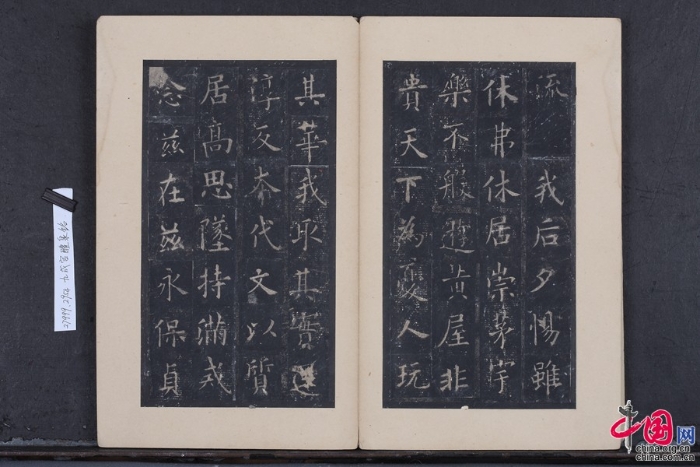 流 我后夕惕雖
休弗休居崇茅宇
樂不般遊黃屋非
貴天下為憂人玩
其華我取其實還
淳反夲代文以質
居高思墜持滿戒
念茲在茲永保貞
中国网
china.org.cn
china.com.cn